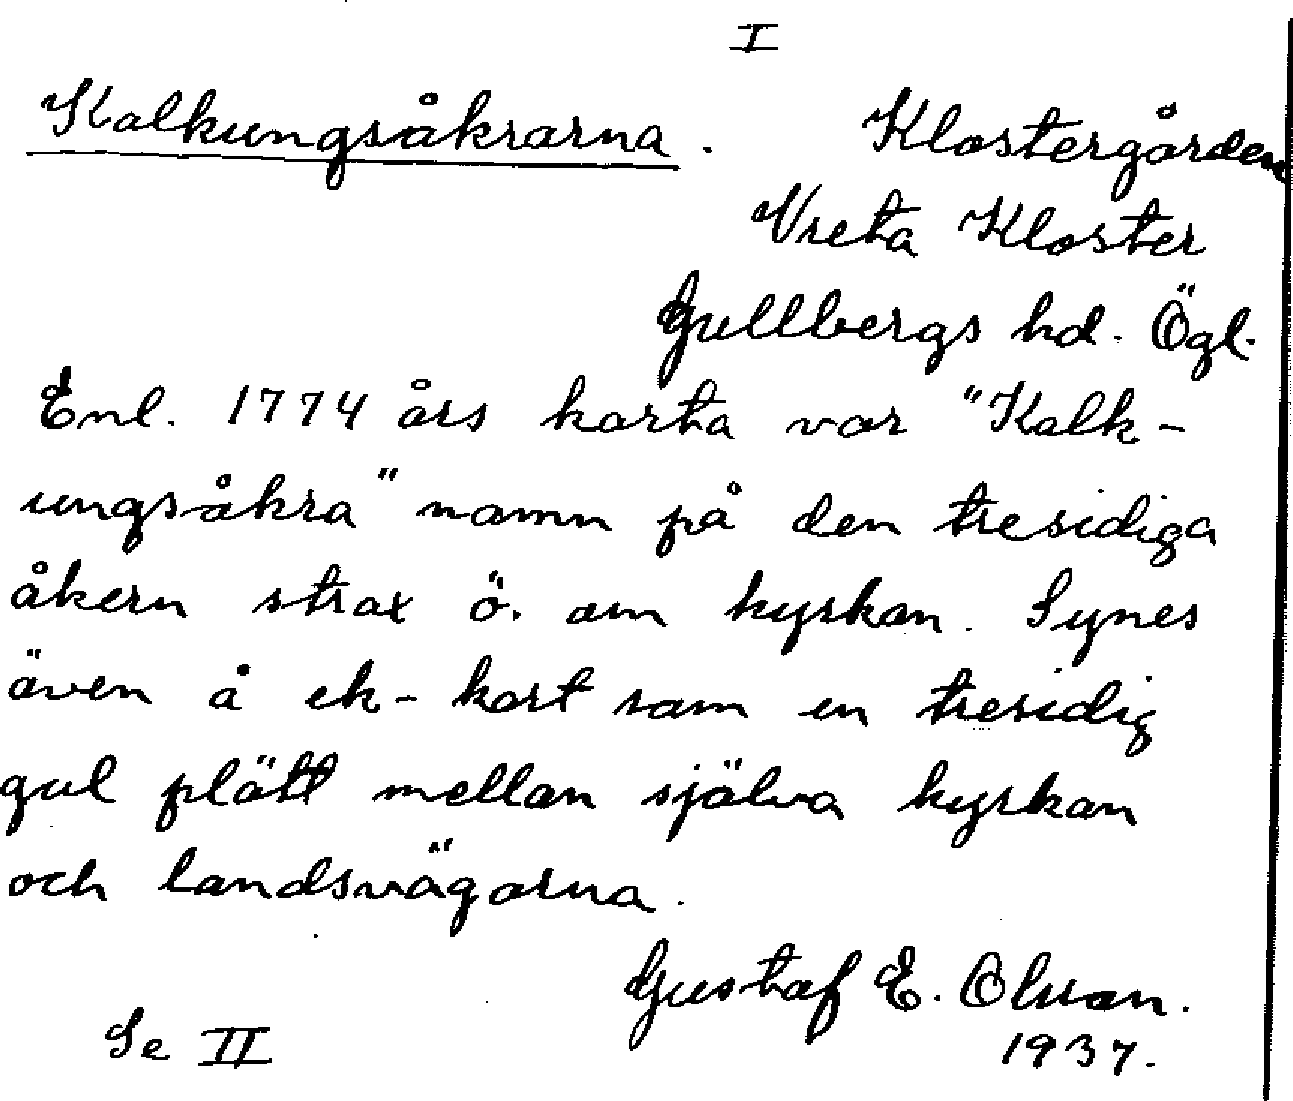 I
Kalkungsåkrarna. Klostergården
Vreta Kloster
Gullbergs hd. Ögl.
Enl. 1774 års karta var "Kalk-
ungsåkra" namn på den tresidiga
åkern strax ö. om kyrkan. Synes
även å ek-kart som en tresidig
gul plätt mellan själva kyrkan
och landsvägarna.
Gustaf E. Olsson.
Se II 1937.